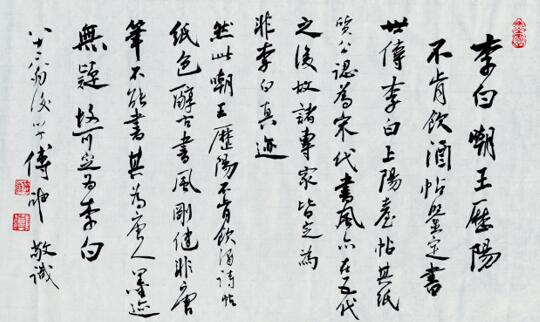 李白嘲王歷陽
不肯飲酒帖鑒定書
世傳李白上陽臺帖其紙
質公認為宋代書風亦在五代
之後故諸專家皆定為
非李白真迹
然此嘲王歷陽不肯飲酒詩帖
紙色醇古書風剛健非唐
筆不能書其為唐人墨迹
無疑故可定為李白
翁後學傅申敬識